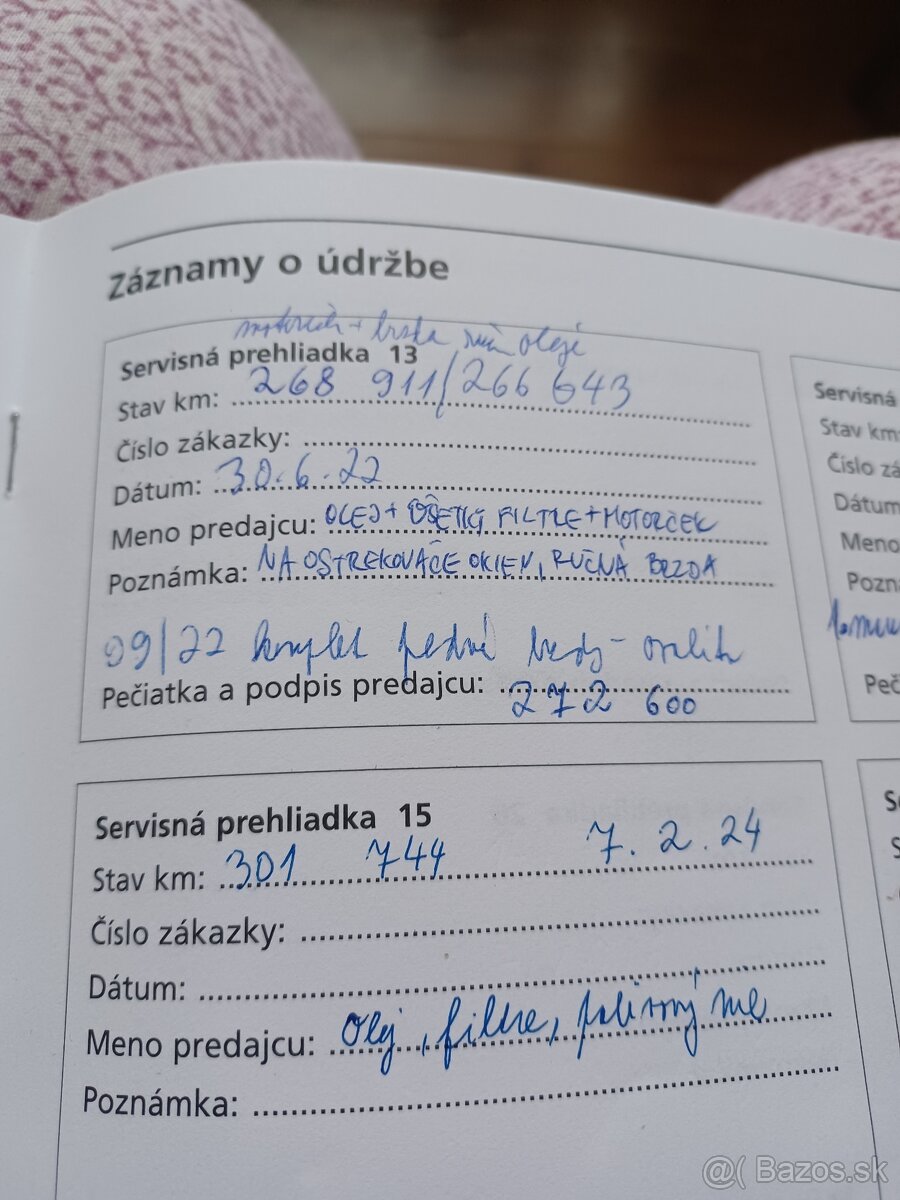 Záznamy o údržbe
Servisná prehliadka 13
Stav km: 268 911/266 643
Číslo zákazky:
Dátum: 30.6.22
Meno predajcu: OLEJ + VŠETKY FILTRE + MOTORČEK
Poznámka: NA OSTREKOVAČE OKIEN, RUČNÁ BRZDA
09/22 komplet predné brzdy -
Pečiatka a podpis predajcu: 272 600
Servisná prehliadka 15
Stav km: 301 744 7.2.24
Číslo zákazky:
Dátum:
Meno predajcu: Olej, filtre, palivový
Poznámka:
Servisná
Stav km:
Číslo zá
Dátum
Meno
Pozn
Peč
@( Bazos.sk